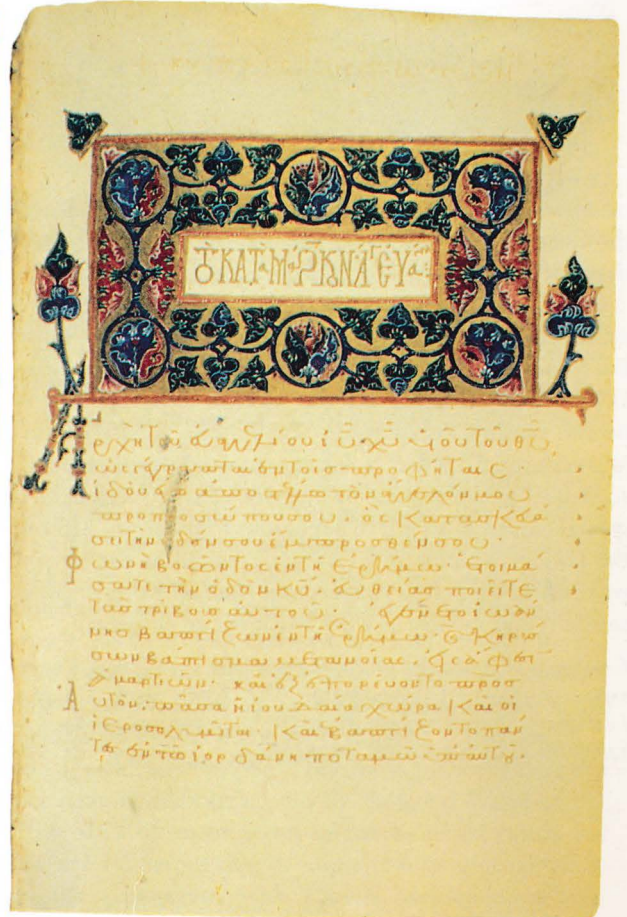 Τὸ ΚΑΤὰ ΜάΡΚΟΝ ἍΓ ΕΥΑ
Ἀρχὴ τοῦ εὐαγγελίου ἰῦ χῦ υἱοῦ τοῦ θῦ
ὡς γέγραπται ἐν τοῖς προφήταις·
ἰδοὺ ἐγὼ ἀποστέλλω τὸν ἄγγελόν μου
πρὸ προσώπου σου. ὃς κατασκευά
σει τὴν ὁδόν σου ἔμπροσθέν σου·
Φωνὴ βοῶντος ἐν τῇ ἐρήμω· ἑτοιμά
σατε τὴν ὁδὸν κῦ. εὐθείας ποιεῖτε
τὰς τρίβους αὐτοῦ· ἐγένετο ἰωάν
νης βαπτίζων ἐν τῇ ἐρήμω. καὶ κηρύσ
σων βάπτισμα μετανοίας. εἰς ἄφεσιν
ἁμαρτιῶν· καὶ ἐξεπορεύοντο πρὸς
Αὐτὸν. πᾶσα ἡ ἰουδαία χώρα καὶ οἱ
ἱεροσολυμῖται. καὶ ἐβαπτίζοντο πάν
τες ἐν τῶ ἰορδάνη ποταμῶ ὑπ' αὐτοῦ.